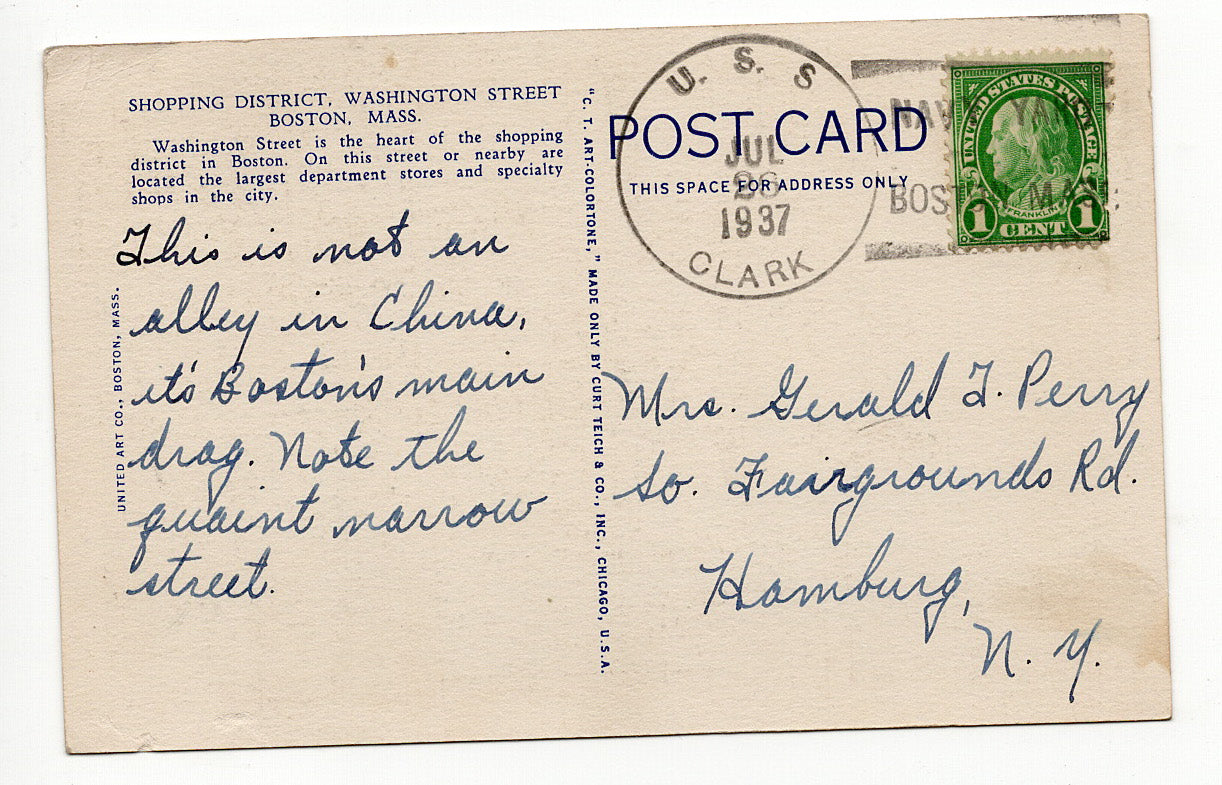 SHOPPING DISTRICT, WASHINGTON STREET
BOSTON, MASS.
Washington Street is the heart of the shopping
district in Boston. On this street or nearby are
located the largest department stores and specialty
shops in the city.
This is not an
alley in China,
it's Boston's main
drag. Note the
quaint narrow
street.
UNITED ART CO., BOSTON, MASS.
"C. T. ART-COLORTONE," MADE ONLY BY CURT TEICH & CO., INC., CHICAGO, U.S.A.
POST CARD
THIS SPACE FOR ADDRESS ONLY
U. S. S
JUL
26
1937
CLARK
NAVY YARD
BOSTON MASS.
UNITED STATES POSTAGE
FRANKLIN
1 CENT 1
Mrs. Gerald T. Perry
So. Fairgrounds Rd.
Hamburg,
N. Y.